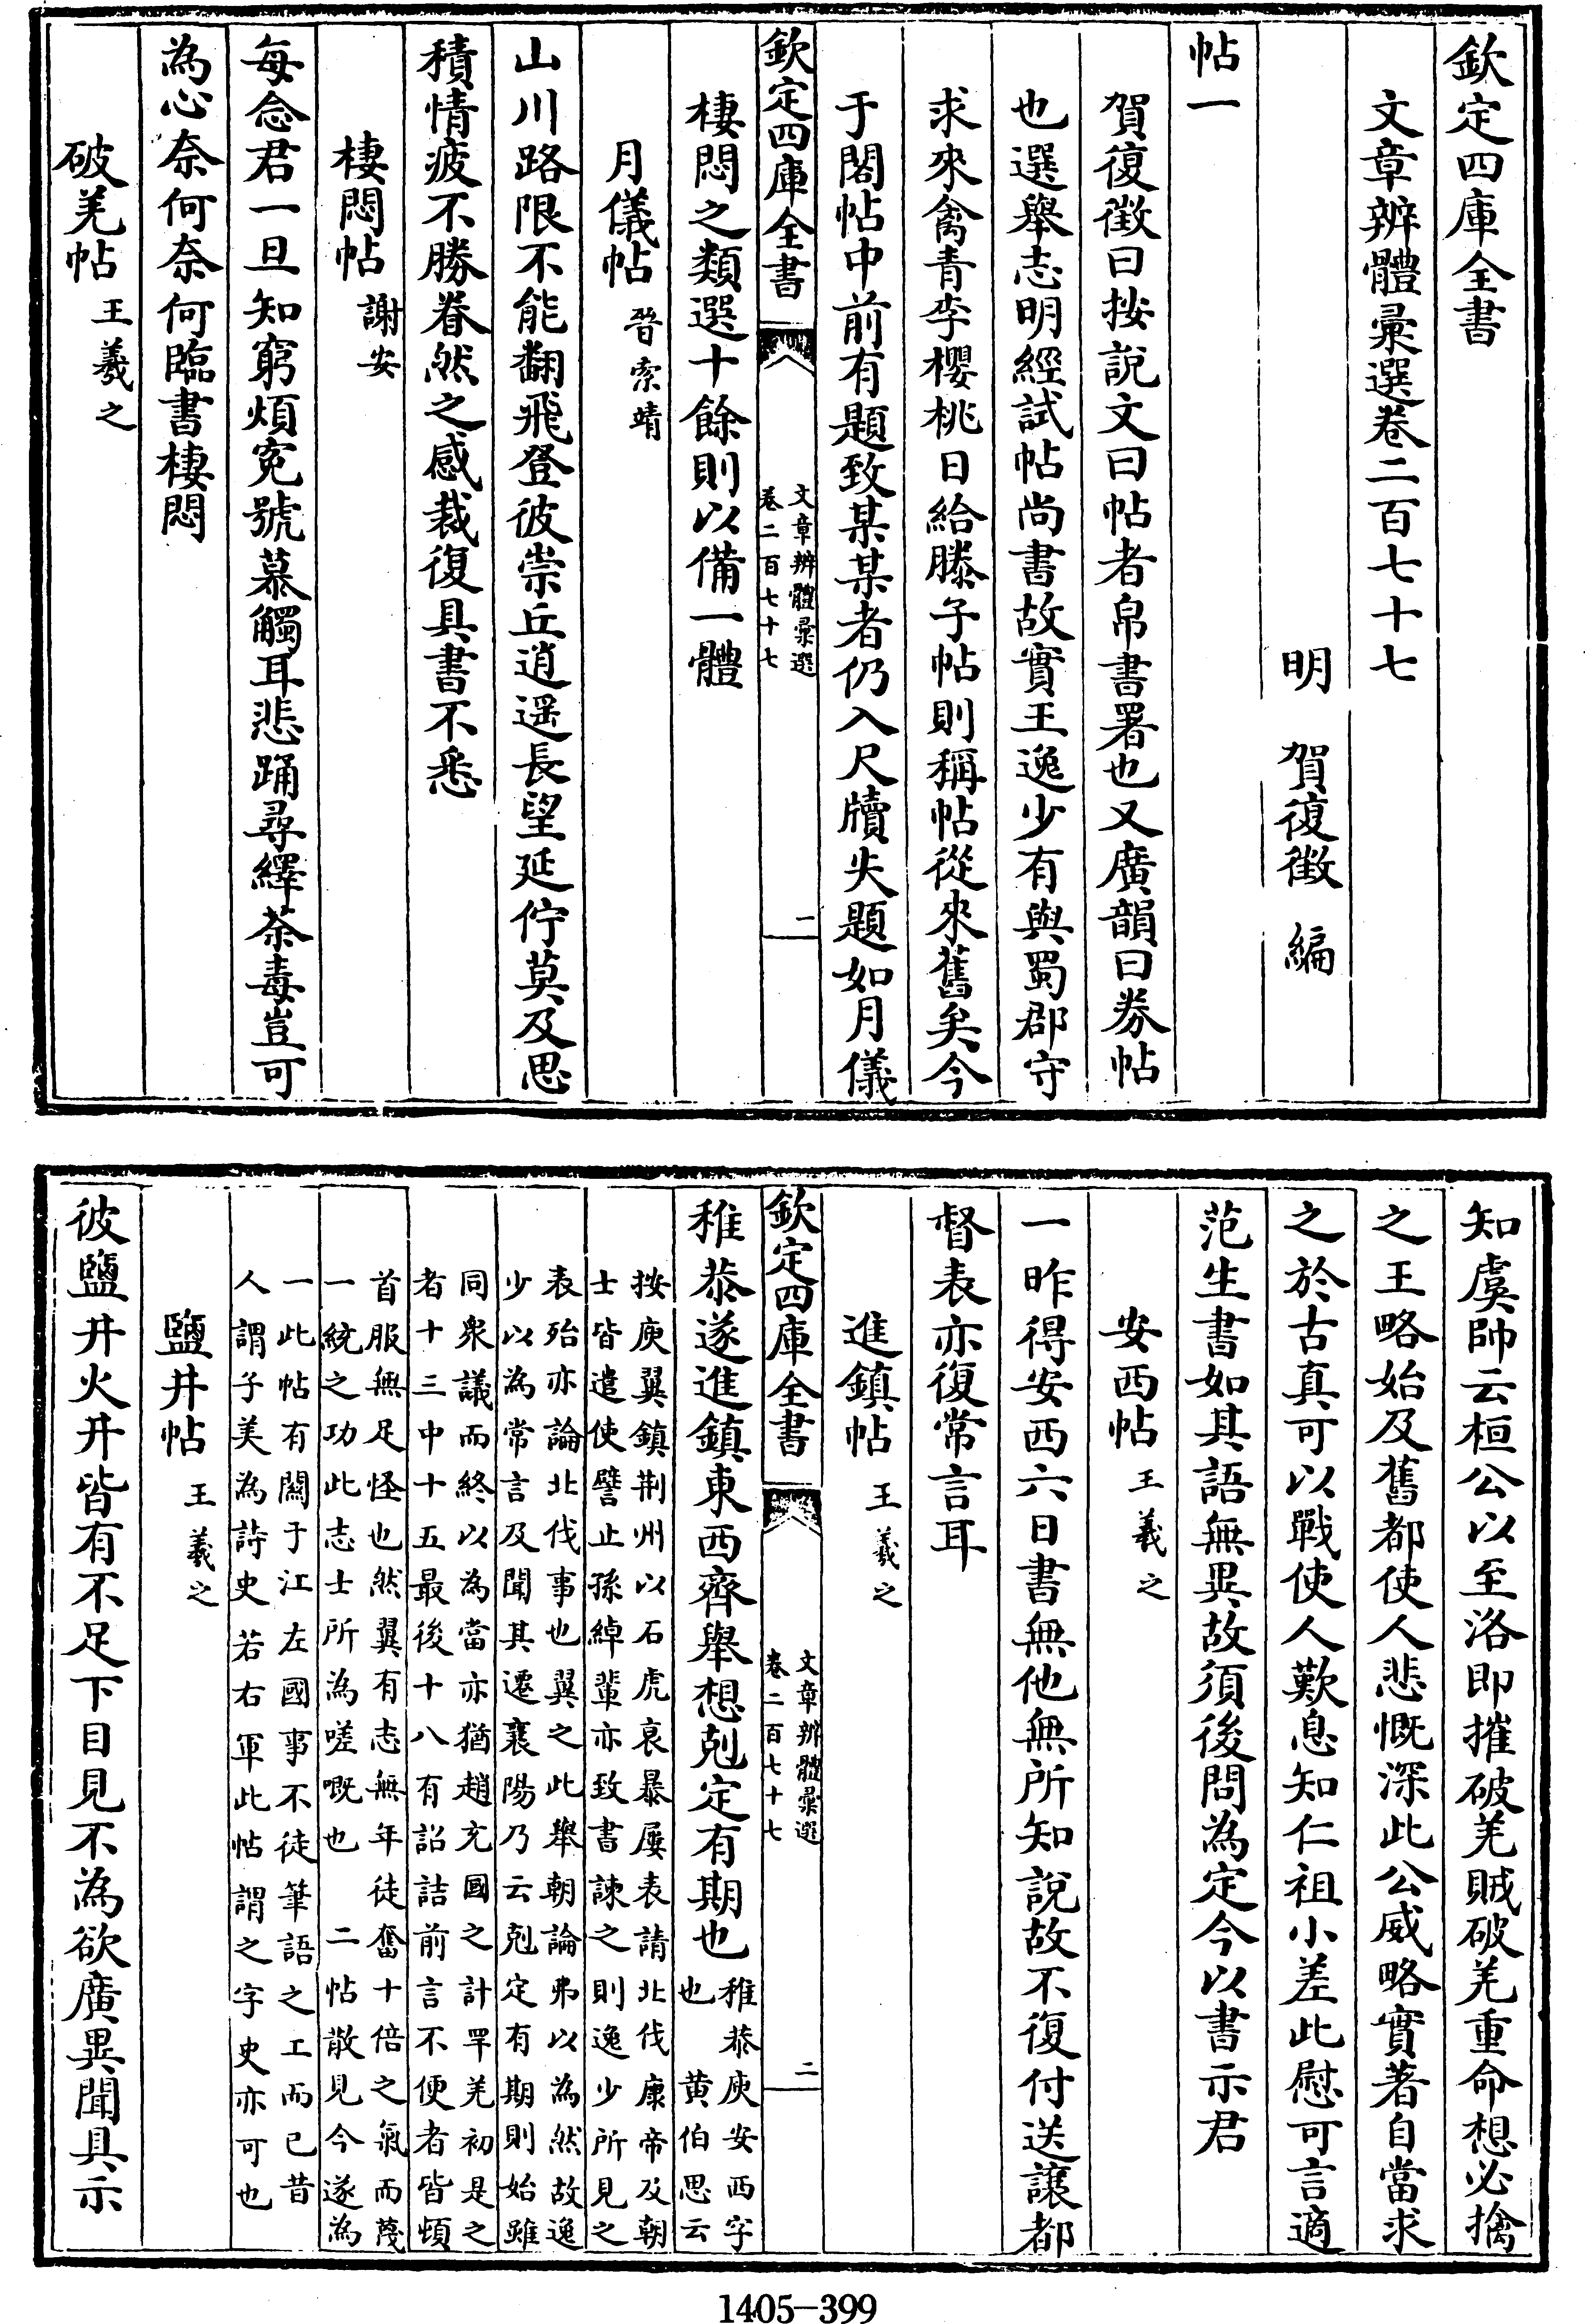 欽定四庫全書
文章辨體彙選卷二百七十七
明　賀復徵　編
帖一
賀復徵曰按說文曰帖者帛書署也又廣韻曰券帖
也選舉志明經試帖尚書故實王逸少有與蜀郡守
求來禽青李櫻桃日給滕子帖則稱帖從來舊矣今
于閣帖中前有題致某某者仍入尺牘失題如月儀
欽定四庫全書
文章辨體彙選
卷二百七十七
二
棲悶之類選十餘則以備一體
月儀帖 晉索靖
山川路限不能翻飛登彼崇丘逍遥長望延佇莫及思
積情疲不勝眷然之感裁復具書不悉
棲悶帖 謝安
每念君一旦知窮煩寃號慕觸耳悲踊尋繹荼毒豈可
為心奈何奈何臨書棲悶
破羌帖 王羲之
知虞帥云桓公以至洛即摧破羌賊破羌重命想必擒
之王略始及舊都使人悲慨深此公威略實著自當求
之於古真可以戰使人歎息知仁祖小差此慰可言適
范生書如其語無異故須後問為定今以書示君
安西帖 王羲之
一昨得安西六日書無他無所知說故不復付送讓都
督表亦復常言耳
進鎮帖 王羲之
欽定四庫全書
文章辨體彙選
卷二百七十七
二
稚恭遂進鎮東西齊舉想剋定有期也 稚恭庾安西字
也　黃伯思云
按庾翼鎮荆州以石虎哀暴屢表請北伐康帝及朝
士皆遣使譬止孫綽輩亦致書諫之則逸少所見之
表殆亦論北伐事也翼之此舉朝論弗以為然故逸
少以為常言及聞其遷襄陽乃云剋定有期則始雖
同衆議而終以為當亦猶趙充國之計罕羌初是之
者十三中十五最後十八有詔詰前言不便者皆頓
首服無足怪也然翼有志無年徒奮十倍之氣而蔑
一統之功此志士所為嗟嘅也　二帖散見今遂為
一此帖有闗于江左國事不徒筆語之工而已昔
人謂子美為詩史若右軍此帖謂之字史亦可也
鹽井帖 王羲之
彼鹽井火井皆有不足下目見不為欲廣異聞具示
1405-399